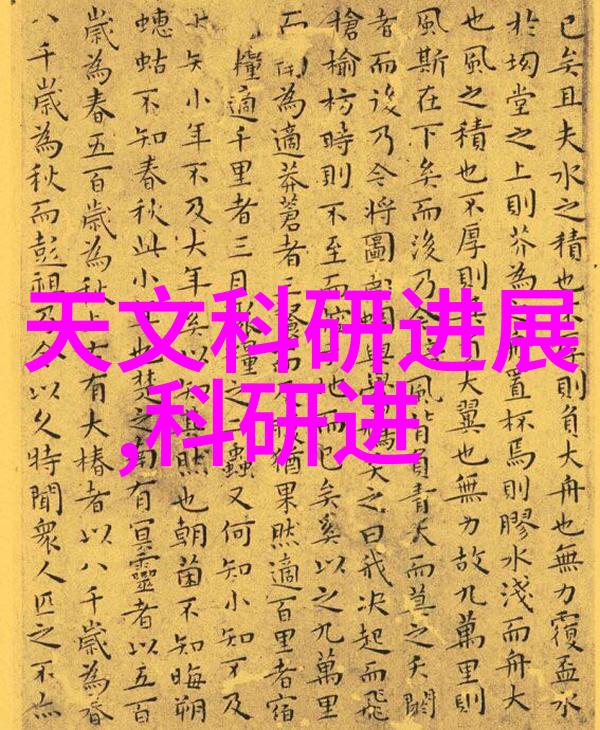 天文科研进展
,科研进
已矣且夫水之積也則負大舟也無力覆盃水
於坳堂之上則芥為置杯焉則膠水淺而舟大
也風之積也不厚則大翼也無力故九萬里則
風斯在下矣而後乃今風背負青天而莫之夭閼
者而後乃今將圖南蜩與之曰我決起而飛
槍榆枋時則不至而地而已矣奚以之九萬里
而為適莽蒼者三猶果然適百里者宿
糧適千里者三月糧之二蟲又何知小知不及
大知小年不及大年奚以知其然也朝菌不知晦朔
蟪蛄不知春秋此小年也楚之南有冥靈者以五百
歲為春五百歲為秋上古有大椿者以八千歲為春
八千歲為秋而彭祖乃今以久特聞衆人匹之不亦